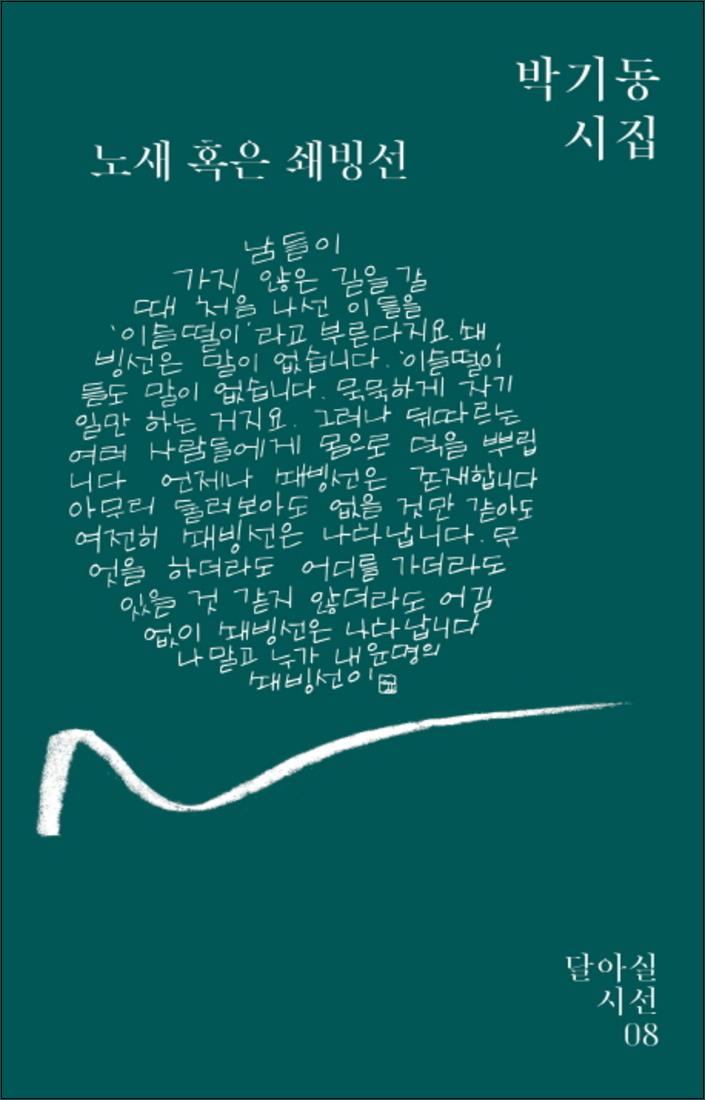 박기동
시집
노새 혹은 쇄빙선
남들이
가지 않은 길을 갈
때 처음 나선 이들을
'이슬떨이'라고 부른다지요. 쇄
빙선은 말이 없습니다. '이슬떨이'
들도 말이 없습니다. 묵묵하게 자기
일만 하는 거지요. 그러나 뒤따르는
여러 사람들에게 몸으로 덕을 뿌립
니다 언제나 쇄빙선은 존재합니다
아무리 둘러보아도 없을 것만 같아도
여전히 쇄빙선은 나타납니다. 무
엇을 하더라도 어디를 가더라도
있을 것 같지 않더라도 어김
없이 쇄빙선은 나타납니다
나 말고 누가 내 운명의
쇄빙선이
달아실
시선
08